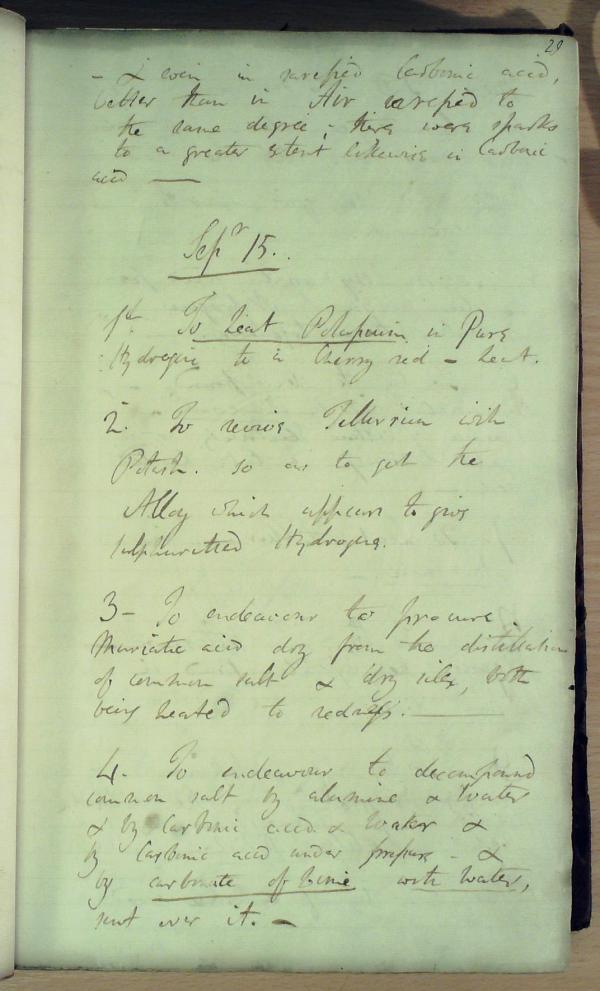 29
- & even in rarefied Carbonic acid,
better than in Air rarefied to
the same degree; there were sparks
to a greater extent likewise in Carbonic
acid —
Sepr 15.
1st. To heat Potassium in Pure
Hydrogene to a Cherry red - heat.
2. To revive Tellurium with
Potash. so as to get the
Alloy which appears to give
sulphuretted Hydrogene.
3 - To endeavour to procure
Muriatic acid dry from the distillation
of common salt & dry silex, both
being heated to redness. —
4. To endeavour to decompound
common salt by alumine & Water
& by Carbonic acid & Water &
by Carbonic acid under pressure - &
by carbonate of Lime with Water,
sent over it. -